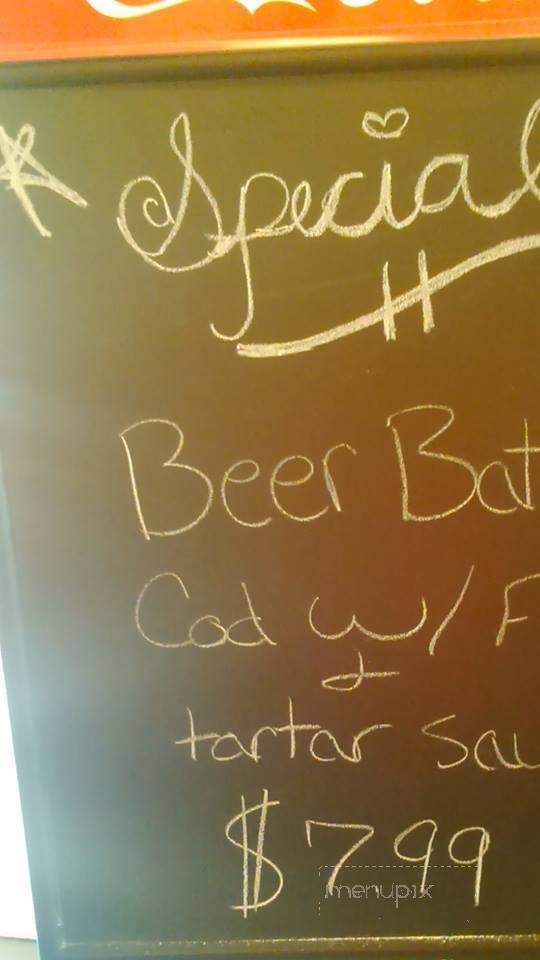 Special
Beer Bat
Cod w/ F
&
tartar sau
$799
menupix